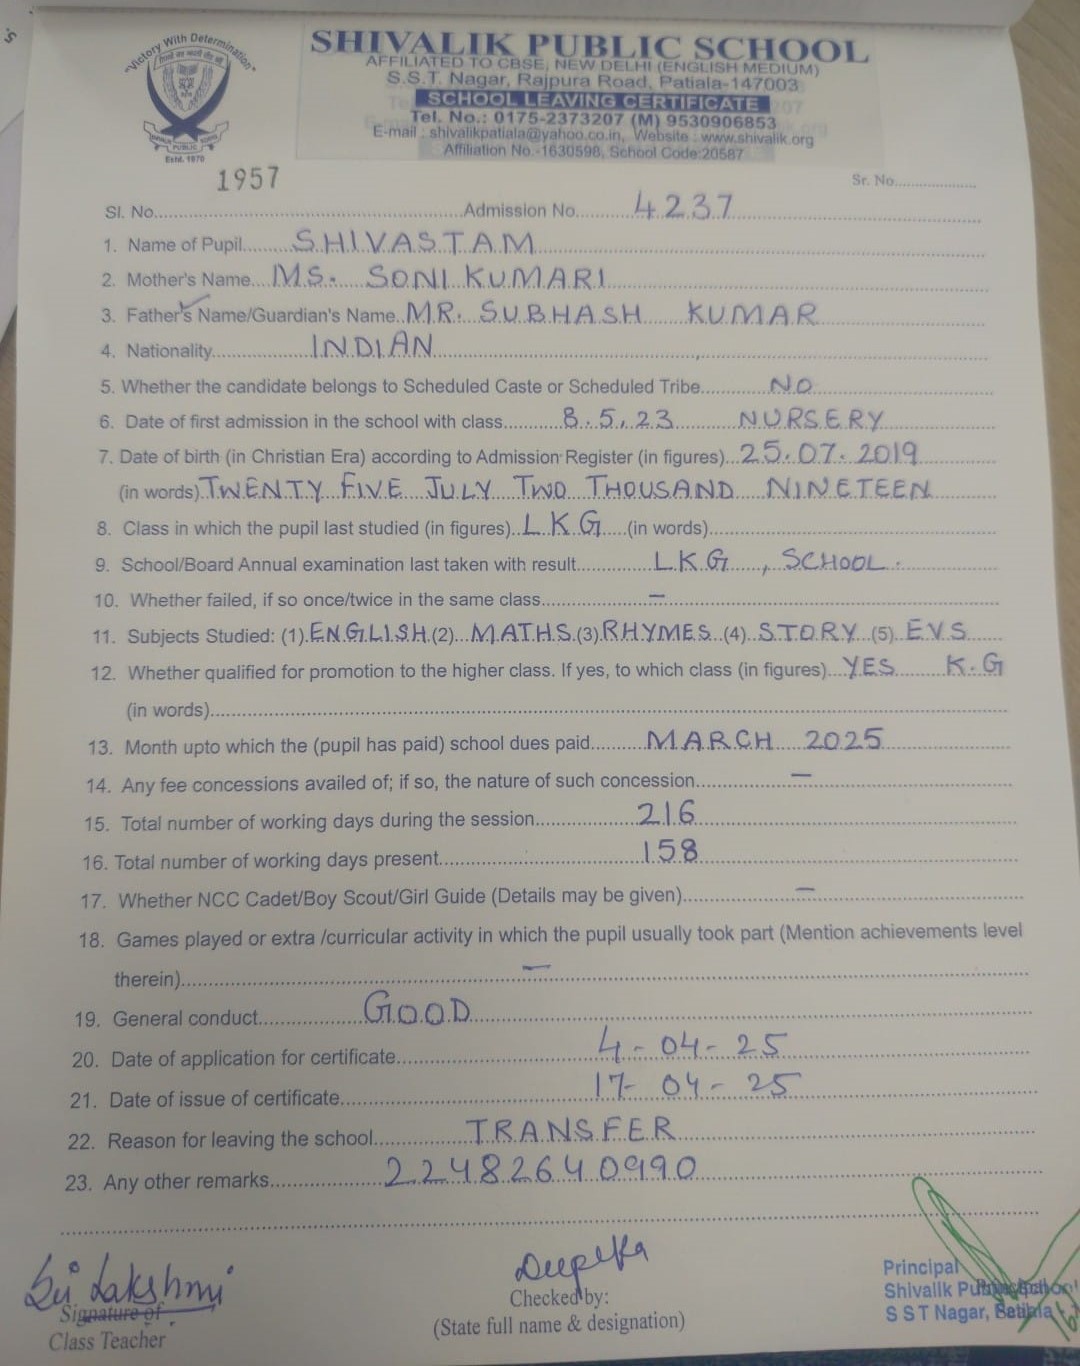 "Victory With Determination"
PUBLIC
Estd. 1970
SHIVALIK PUBLIC SCHOOL
AFFILIATED TO CBSE, NEW DELHI (ENGLISH MEDIUM)
S.S.T. Nagar, Rajpura Road, Patiala-147003
SCHOOL LEAVING CERTIFICATE
Tel. No.: 0175-2373207 (M) 9530906853
E-mail : shivalikpatiala@yahoo.co.in, Website : www.shivalik.org
Affiliation No.-1630598, School Code:20587
1957
Sr. No.
Sl. No. Admission No. 4237
1. Name of Pupil SHIVASTAM
2. Mother's Name MS. SONI KUMARI
3. Father's Name/Guardian's Name MR. SUBHASH KUMAR
4. Nationality INDIAN
5. Whether the candidate belongs to Scheduled Caste or Scheduled Tribe NO
6. Date of first admission in the school with class 8.5.23 NURSERY
7. Date of birth (in Christian Era) according to Admission Register (in figures) 25.07.2019
(in words) TWENTY FIVE JULY TWO THOUSAND NINETEEN
8. Class in which the pupil last studied (in figures) L.K.G (in words)
9. School/Board Annual examination last taken with result L.K.G, SCHOOL.
10. Whether failed, if so once/twice in the same class –
11. Subjects Studied: (1) ENGLISH (2) MATHS (3) RHYMES (4) STORY (5) EVS
12. Whether qualified for promotion to the higher class. If yes, to which class (in figures) YES K.G
(in words)
13. Month upto which the (pupil has paid) school dues paid MARCH 2025
14. Any fee concessions availed of; if so, the nature of such concession –
15. Total number of working days during the session 216
16. Total number of working days present 158
17. Whether NCC Cadet/Boy Scout/Girl Guide (Details may be given) –
18. Games played or extra /curricular activity in which the pupil usually took part (Mention achievements level
therein) –
19. General conduct GOOD
20. Date of application for certificate 4-04-25
21. Date of issue of certificate 17-04-25
22. Reason for leaving the school TRANSFER
23. Any other remarks 22482640990
Sri Lakshmi
Signature of
Class Teacher
Deepika
Checked by:
(State full name & designation)
Principal
Shivalik Public School
S S T Nagar, Patiala